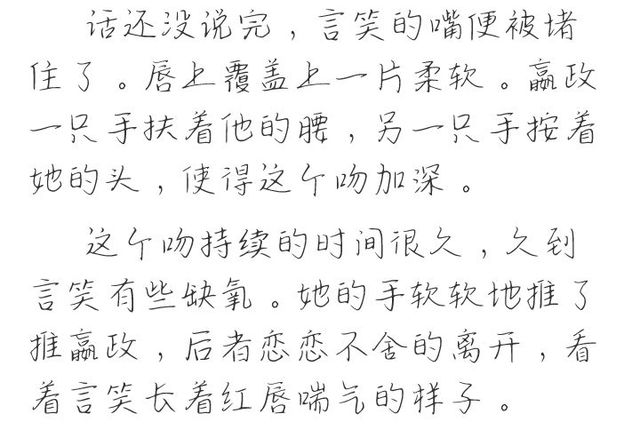 话还没说完，言笑的嘴便被堵
住了。唇上覆盖上一片柔软。嬴政
一只手扶着他的腰，另一只手按着
她的头，使得这个吻加深。
这个吻持续的时间很久，久到
言笑有些缺氧。她的手软软地推了
推嬴政，后者恋恋不舍的离开，看
着言笑长着红唇喘气的样子。